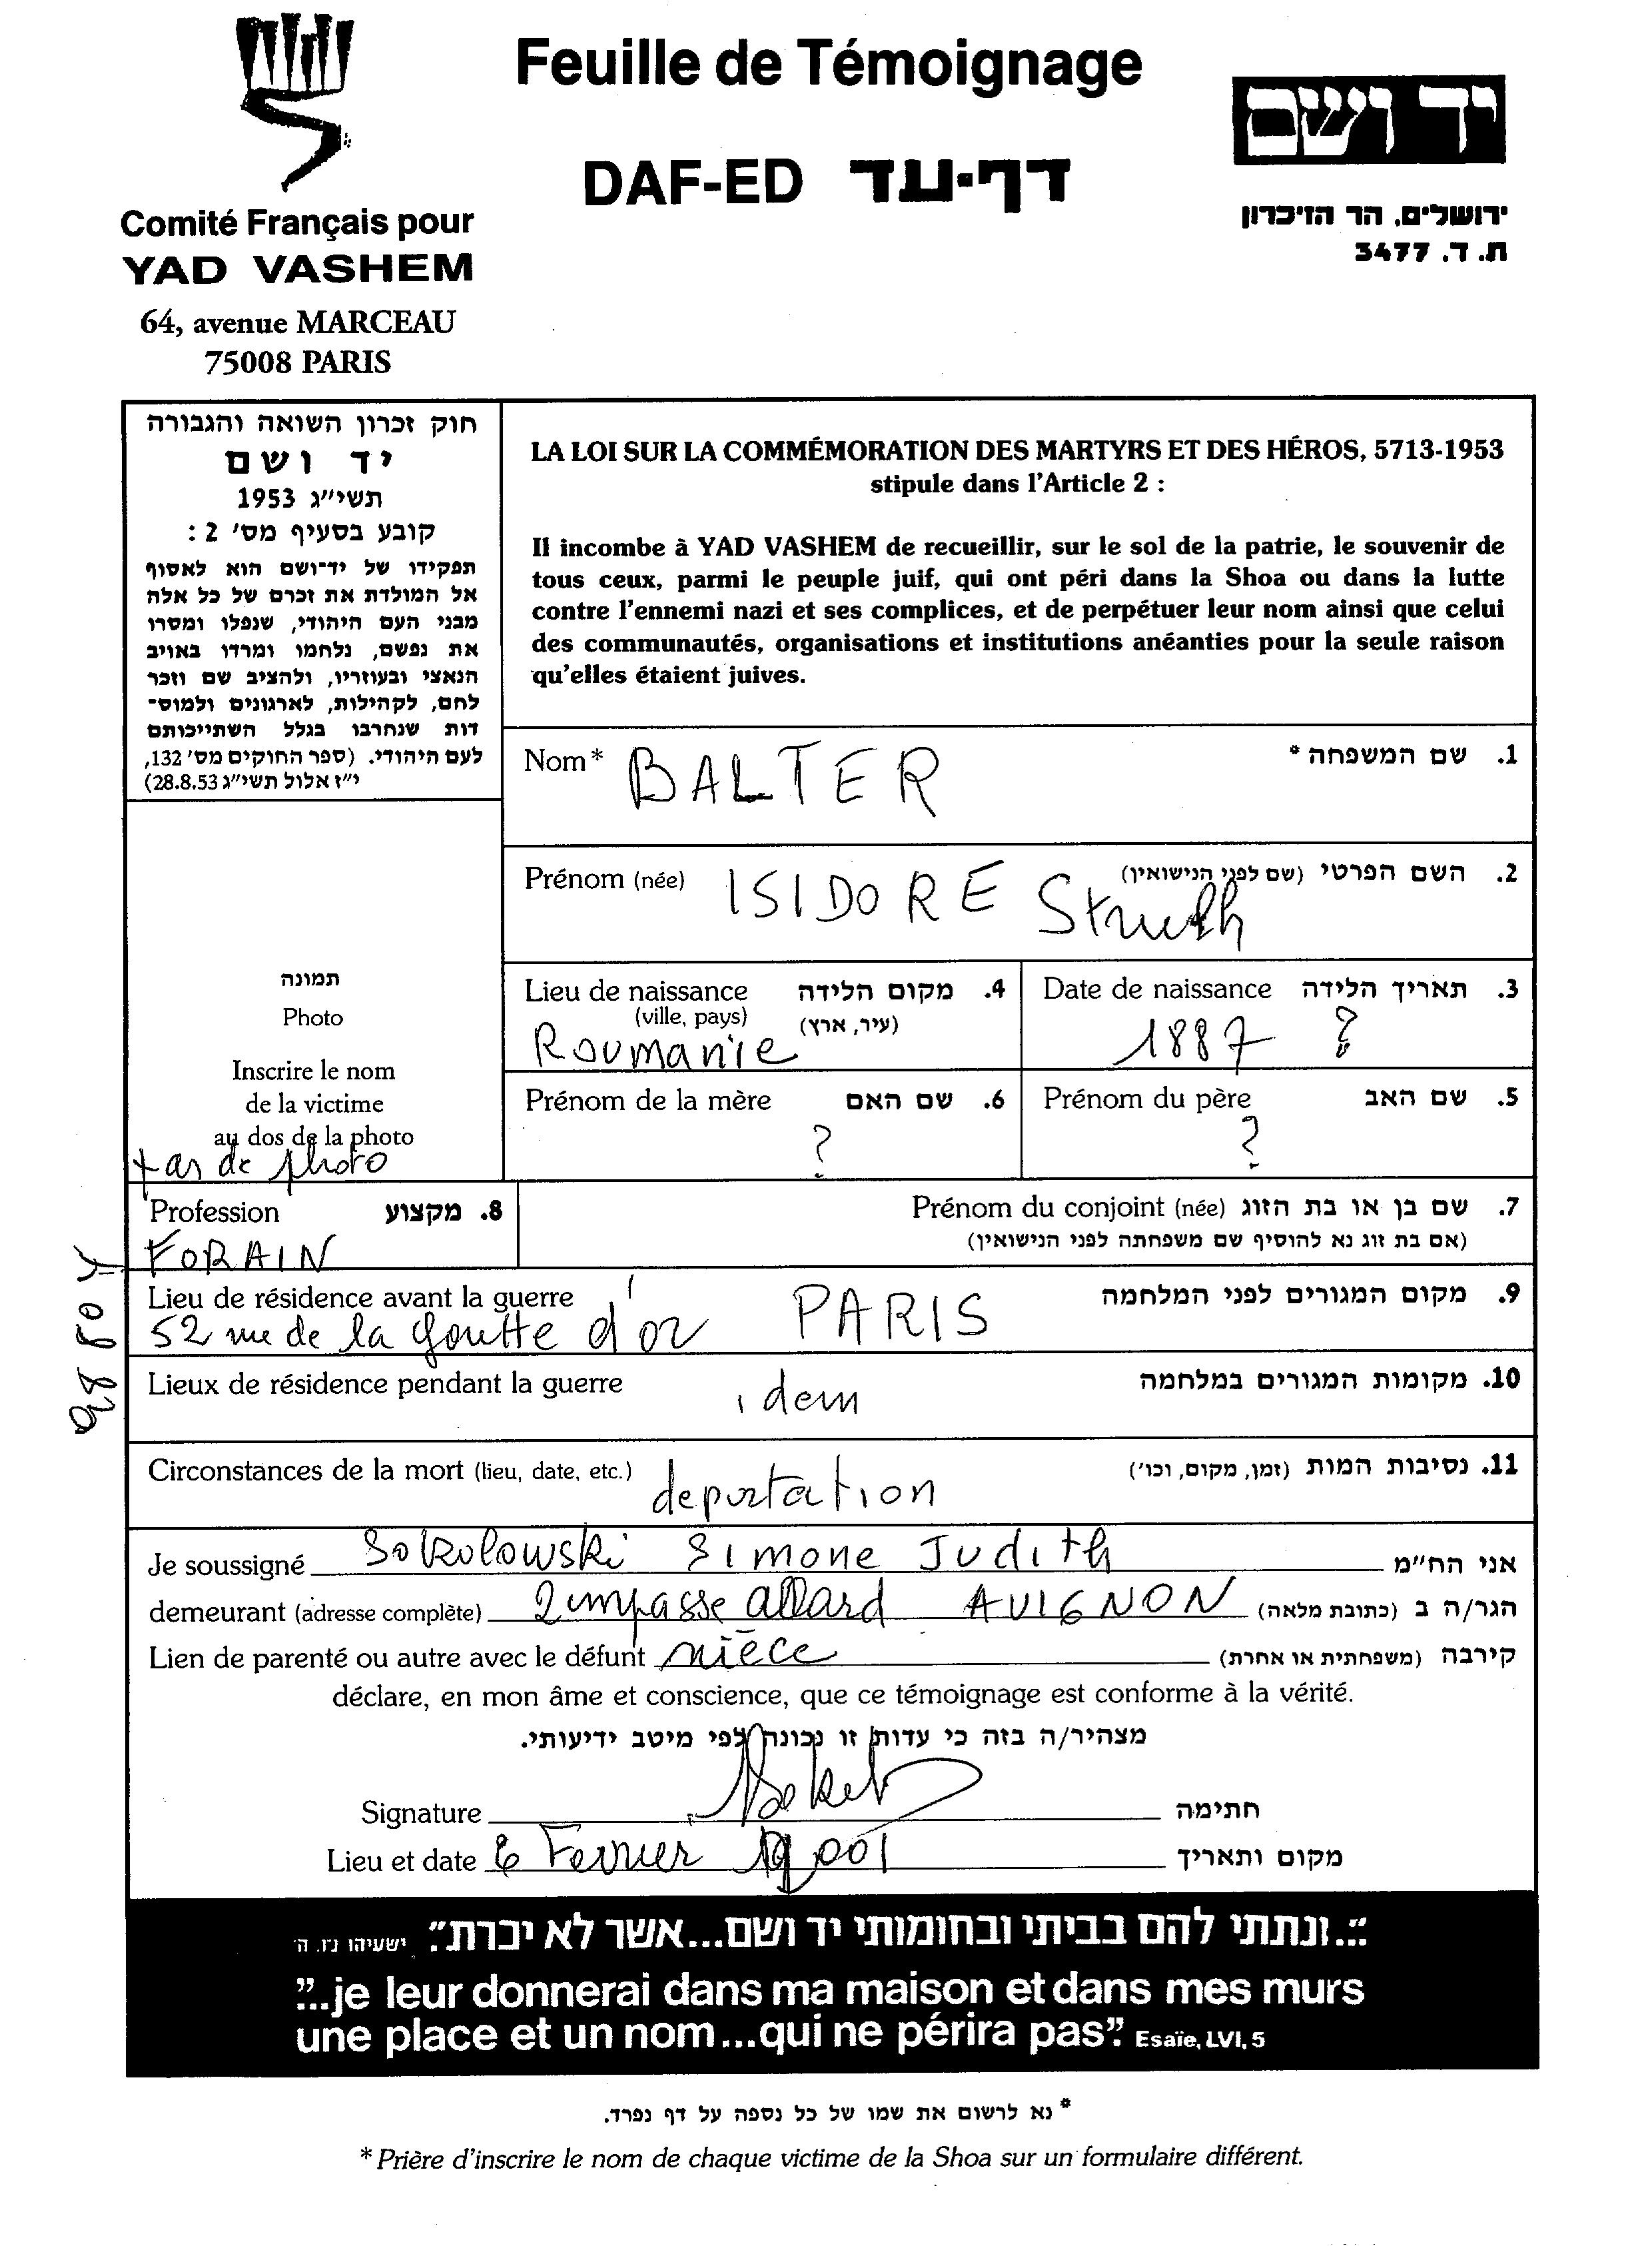 Feuille de Témoignage
DAF-ED דף-עד
Comité Français pour
YAD VASHEM
64, avenue MARCEAU
75008 PARIS
יד ושם
ירושלים, הר הזיכרון
ת. ד. 3477
חוק זכרון השואה והגבורה
יד ושם
תשי״ג 1953
קובע בסעיף מס׳ 2 :
תפקידו של יד־ושם הוא לאסוף
אל המולדת את זכרם של כל אלה
מבני העם היהודי, שנפלו ומסרו
את נפשם, נלחמו ומרדו באויב
הנאצי ובעוזריו, ולהציב שם וזכר
להם, לקהילות, לארגונים ולמוס־
דות שנחרבו בגלל השתייכותם
לעם היהודי. (ספר החוקים מס׳ 132,
י״ז אלול תשי״ג 28.8.53)
LA LOI SUR LA COMMÉMORATION DES MARTYRS ET DES HÉROS, 5713-1953
stipule dans l'Article 2 :
Il incombe à YAD VASHEM de recueillir, sur le sol de la patrie, le souvenir de
tous ceux, parmi le peuple juif, qui ont péri dans la Shoa ou dans la lutte
contre l'ennemi nazi et ses complices, et de perpétuer leur nom ainsi que celui
des communautés, organisations et institutions anéanties pour la seule raison
qu'elles étaient juives.
Nom* BALTER 1. שם המשפחה *
Prénom (née) ISIDORE 2. השם הפרטי (שם לפני הנישואין)
Lieu de naissance 4. מקום הלידה
(ville, pays) (עיר, ארץ)
Roumanie
Date de naissance 3. תאריך הלידה
1887 ?
Prénom de la mère 6. שם האם
?
Prénom du père 5. שם האב
?
תמונה
Photo
Inscrire le nom
de la victime
au dos de la photo
pas de photo
Profession 8. מקצוע
FORAIN
Prénom du conjoint (née) 7. שם בן או בת הזוג
(אם בת זוג נא להוסיף שם משפחתה לפני הנישואין)
Lieu de résidence avant la guerre 9. מקום המגורים לפני המלחמה
52 rue de la goutte d'or PARIS
Lieux de résidence pendant la guerre idem 10. מקומות המגורים במלחמה
Circonstances de la mort (lieu, date, etc.) deportation 11. נסיבות המות (זמן, מקום, וכו׳)
Je soussigné Sokolowski Simone Judith אני הח״מ
demeurant (adresse complète) 2 impasse allard AVIGNON הגר/ה ב (כתובת מלאה)
Lien de parenté ou autre avec le défunt nièce קירבה (משפחתית או אחרת)
déclare, en mon âme et conscience, que ce témoignage est conforme à la vérité.
מצהיר/ה בזה כי עדות זו נכונה לפי מיטב ידיעותי.
Signature חתימה
Lieu et date 6 Fevrier 2001 מקום ותאריך
״...ונתתי להם בביתי ובחומותי יד ושם...אשר לא יכרת״. ישעיהו נ״ו, ה׳
"...je leur donnerai dans ma maison et dans mes murs
une place et un nom...qui ne périra pas". Esaïe, LVI, 5
* נא לרשום את שמו של כל נספה על דף נפרד.
* Prière d'inscrire le nom de chaque victime de la Shoa sur un formulaire différent.